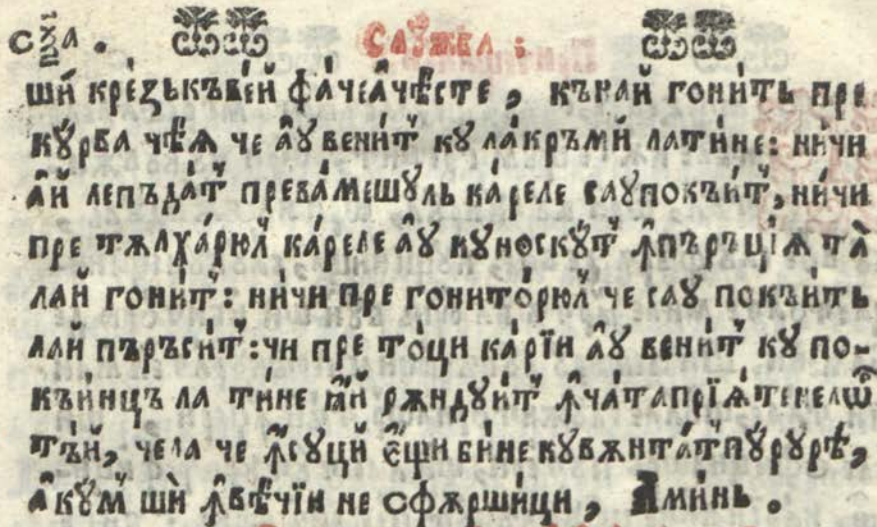 сѯа. Слꙋжба:
шѝ кре́ꙁькъвѐй фа́чеа҆чѣ́сте, къна́й гони́ть пре
кꙋ́рва чѣ́ѧ че а҆́ꙋ вени́т кꙋ ла́кръмѝ лати́не: ни́чи
а҆́й лепъда́т превамешꙋль ка́реле саꙋпокъи́т, ни́чи
пре тѫлха́рюл ка́реле а҆́ꙋ кꙋноскꙋ́т ꙟ҆пъръці́ѧ та̀
лай гони́т: ни́чи пре гонито́рюл че саꙋ покъи́ть
лай пъръси́т: чи пре то́ци ка́рїи а҆́ꙋ вени́т кꙋ по-
къи́нцъ ла ти́не рѫндꙋи́т ꙟ҆ча́та прїѧ́тенелѡр
тъ́й, чела че ꙟ҆сꙋцѝ є҆́щи би́не кꙋвѫнта́т пꙋ́рꙋрѣ,
а҆кꙋ́м шѝ ꙟ҆вѣ́чїи не сфѫрши́ци, Ами́нь.